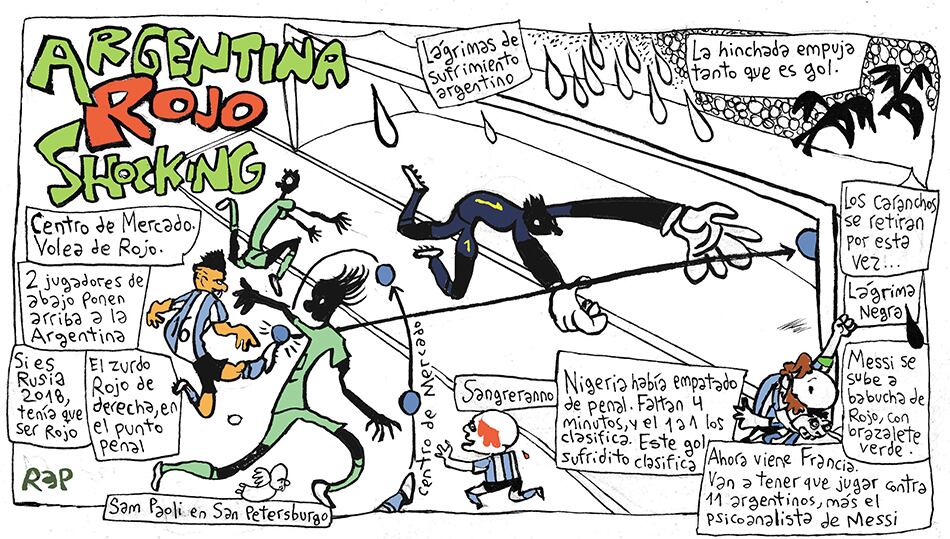 ARGENTINA
ROJO
SHOCKING
Lágrimas de
sufrimiento
argentino
La hinchada empuja
tanto que es gol.
Centro de Mercado.
Volea de Rojo.
2 jugadores de
abajo ponen
arriba a la
Argentina
Si es
Rusia
2018,
tenía que
ser Rojo
El zurdo
Rojo de
derecha, en
el punto
penal
6
1
1
Centro de Mercado
Los caranchos
se retiran
por esta
vez...
Lágrima
Negra
Messi se
sube a
babucha de
Rojo, con
brazalete
verde.
Sangreranno
Nigeria había empatado
de penal. Faltan 4
minutos, y el 1 a 1 los
clasifica. Este gol
sufridito clasifica
Ahora viene Francia.
Van a tener que jugar contra
11 argentinos, más el
psicoanalista de Messi
REP
Sam Paoli en San Petersburgo